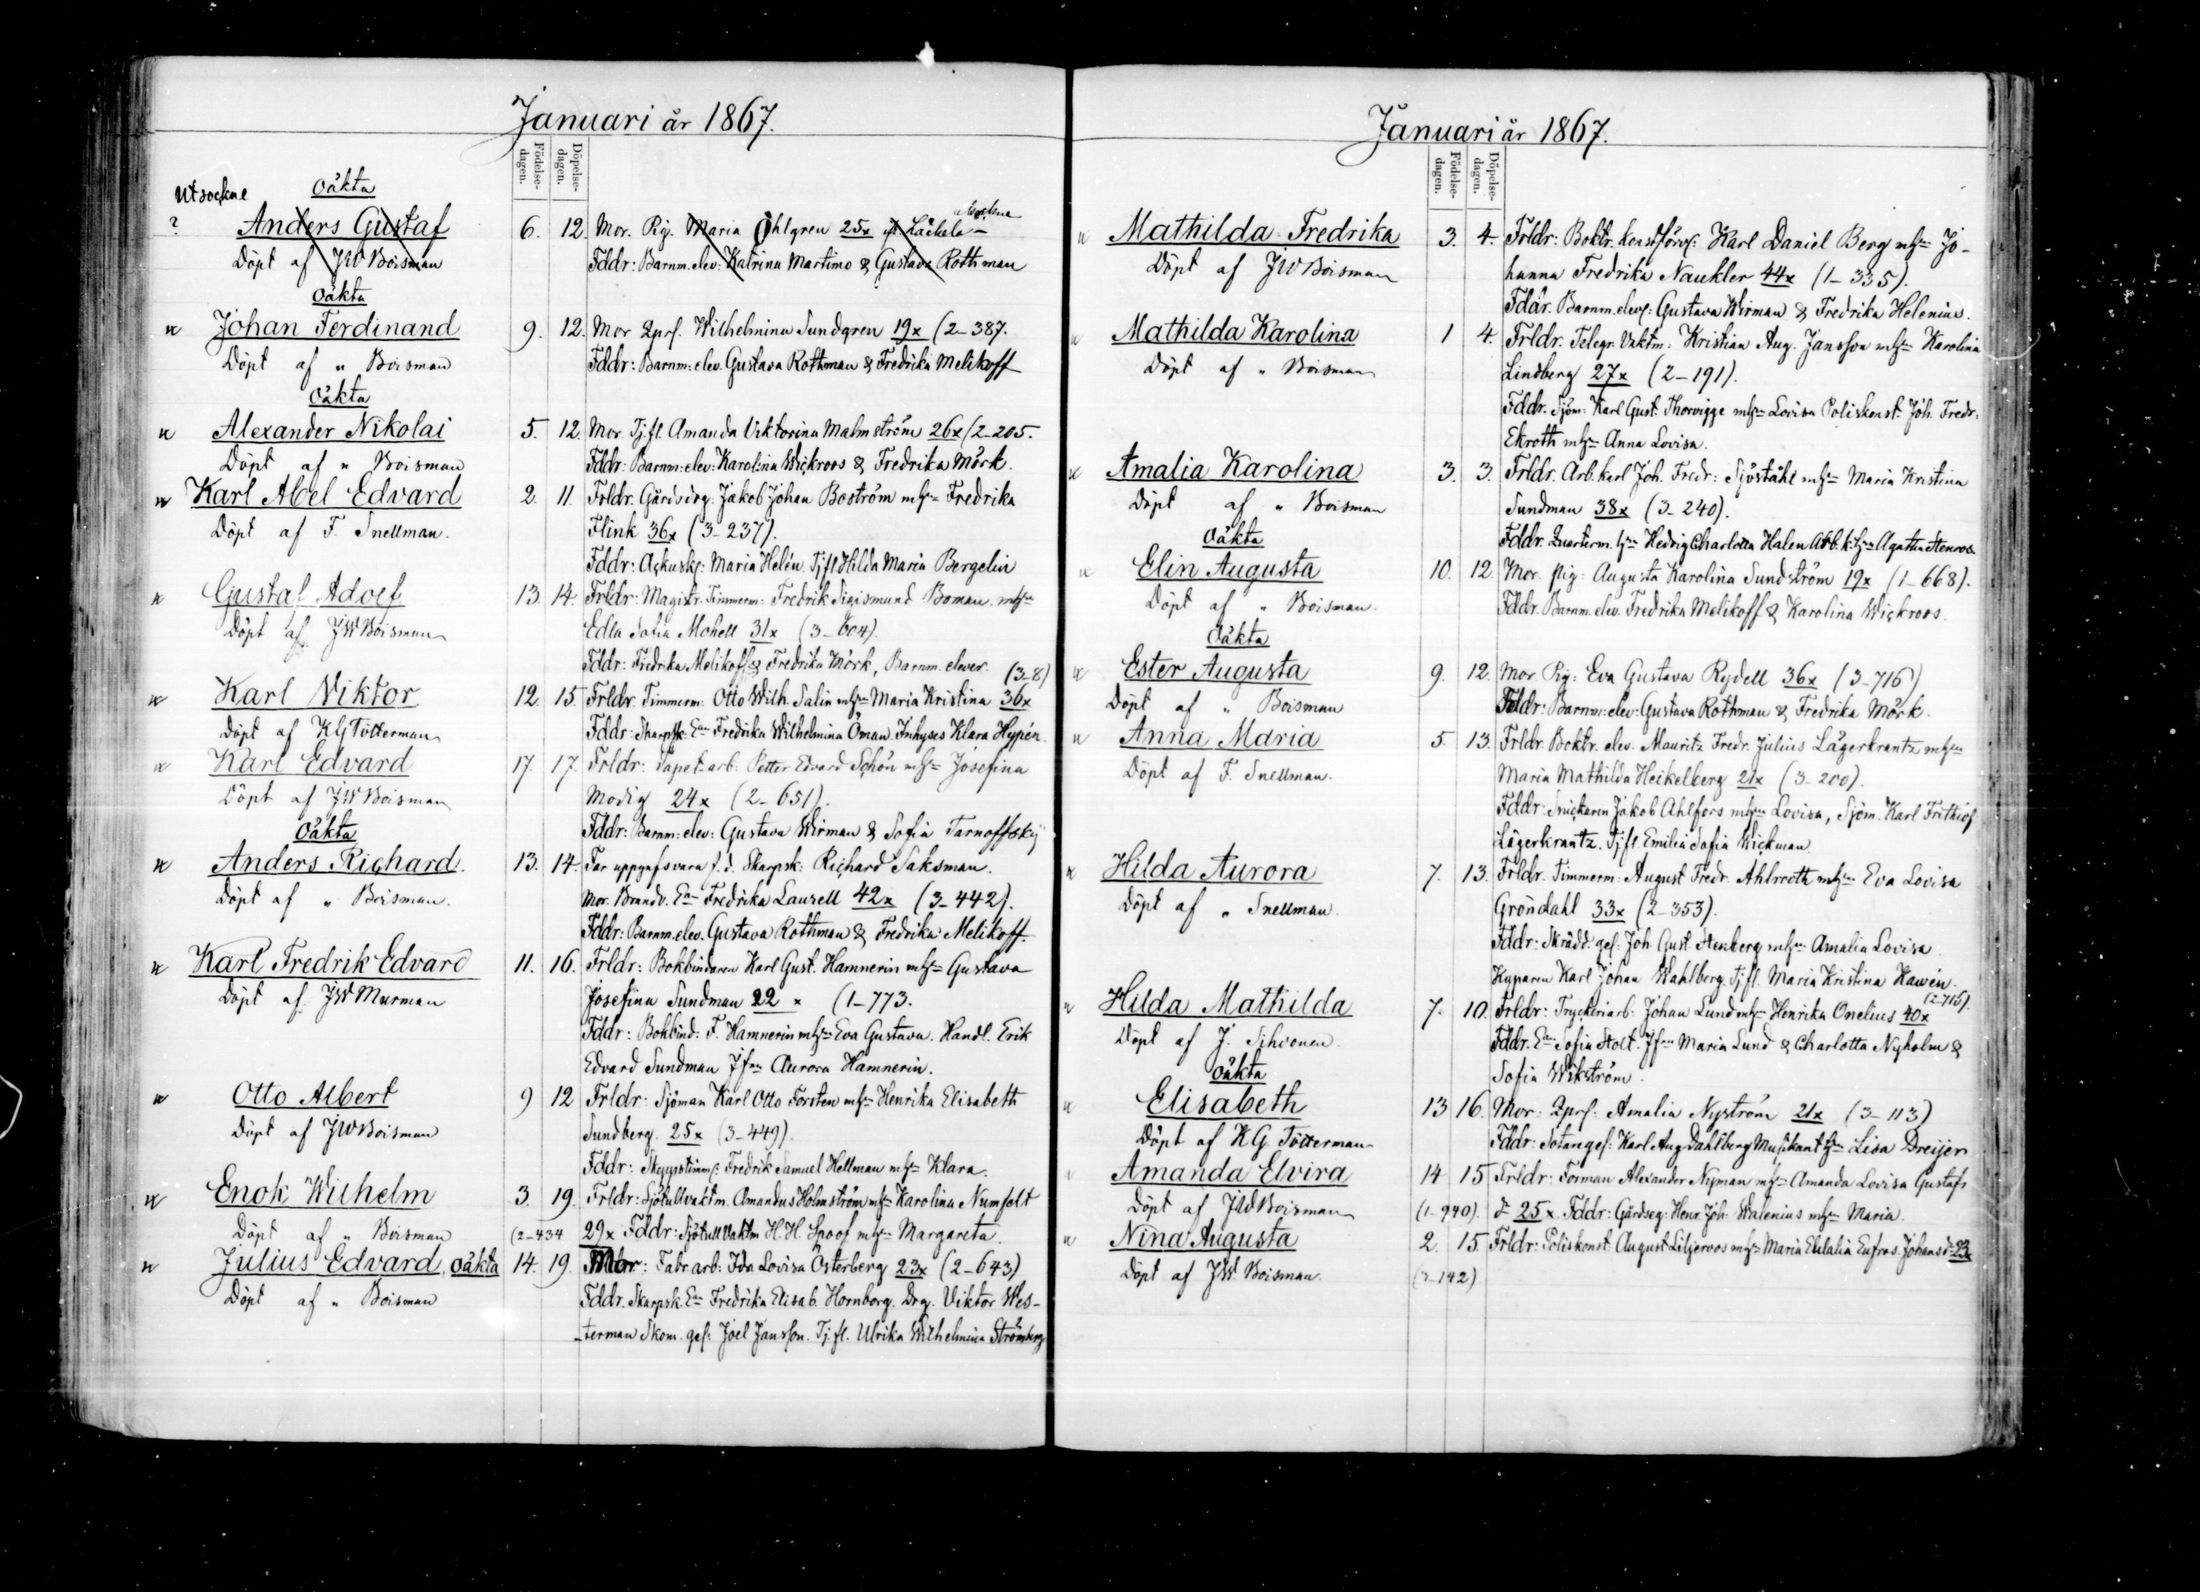 Januari år 1867.
Födelse-dagen.
Döpelse-dagen.
Utsockne Oäkta
? Anders Gustaf 6. 12. Mor. Pig. Maria Öhlgren 25x
Döpt af JW Boisman Fddr: Barnm. elev: Katrina Martimo & Gustava Rothman
Oäkta
Johan Ferdinand 9. 12. Mor Wilhelmina Sundgren 19x (2-387.
Döpt af " Boisman Fddr: Barnm: elev. Gustava Rothman & Fredrika Melikoff
Oäkta
Alexander Nikolai 5. 12. Mor. Tj.fl. Amanda Viktorina Malmström 26x (2-205.
Döpt af " Boisman Fddr: Barnm: elev: Karolina Wickroos & Fredrika Mörk.
Karl Abel Edvard 2. 11. Frldr. Gårdsdrg. Jakob Johan Boström mhn Fredrika
Döpt af F. Snellman. Flink 36x (3-237).
Fddr: Ackuskf: Maria Helén. Tjfl Hilda Maria Bergelin
Gustaf Adolf 13. 14. Frldr: Magistr. Timmerm: Fredrik Sigismund Boman. mhn
Döpt af JW Boisman Edla Sofia Mohell 31x (3-604).
Fddr: Fredrika Melikoff & Fredrika Mörk, Barnm. elever. (3-8)
Karl Viktor 12. 15. Frldr. Timmerm: Otto Wilh. Salin mhn Maria Kristina 36x
Döpt af KG Tötterman Fddr: Skarpsk: Enn Fredrika Wilhelmina Öman. Inhyses Klara Hypén.
Karl Edvard 17. 17. Frldr: Tapet-arb. Petter Edvard Schön mhn Josefina
Döpt af JW Boisman Modig 24x (2-651).
Fddr: Barnm: elev: Gustava Wirman & Sofia Tarnoffsky
Oäkta
Anders Richard. 13. 14. Far uppgafs vara f. d. Skarpsk: Richard Saksman.
Döpt af " Boisman. Mor. Brandv. Enn Fredrika Laurell 42x (3-442).
Fddr: Barnm. elev. Gustava Rothman & Fredrika Melikoff.
Karl Fredrik Edvard 11. 16. Frldr: Bokbindaren Karl Gust. Hamnerin mhn Gustava
Döpt af JW Murman Josefina Sundman 22 x (1-773.
Fddr: Bokbind: F. Hamnerin mhn Eva Gustava. Handl. Erik
Edvard Sundman Jfn Aurora Hamnerin.
Otto Albert 9 12 Frldr: Sjöman Karl Otto Forsten mhn Henrika Elisabeth
Döpt af JW Boisman Sundberg. 25x (3-449).
Fddr: Skeppstimm: Fredrik Samuel Hellman mhn Klara.
Enok Wilhelm 3. 19. Frldr: Sjötullvaktm. Amandus Holmström mhn Karolina Numfelt
Döpt af " Boisman (2-434 29x Fddr: Sjötull Vaktm H. H. Spoof mhn Margareta.
Julius Edvard, oäkta 14. 19. Mor: Fabr. arb: Ida Lovisa Österberg 23x (2-643)
Döpt af " Boisman Fddr. Skarpsk. Enn Fredrika Elisab. Hornborg. Drg. Viktor Wes-
terman Skom. ges: Joel Jansson. Tj. fl. Ulrika Wilhelmina Strömberg
Januari år 1867.
Födelse-dagen.
Döpelse-dagen.
Mathilda Fredrika 3. 4. Frldr: Boktr. konstförv: Karl Daniel Berg mhn Jo-
Döpt af JW Boisman hanna Fredrika Naukler 44x (1-335).
Fddr. Barnm. elev: Gustava Wirman & Fredrika Helenius.
Mathilda Karolina 1 4. Frldr. Telegr. Vaktm: Kristian Aug. Jansson mhn Karolina
Döpt af " Boisman Lindberg 27x (2-191).
Fddr. Sjöm: Karl Gust. Thorvigge mhn Lovisa Poliskonst. Joh. Fredr:
Ekroth mhn Anna Lovisa.
Amalia Karolina 3. 3. Frldr. Arb. karl Joh. Fredr: Sjöståhl mhn Maria Kristina
Döpt af " Boisman Sundman 38x (3-240).
Oäkta Fddr. Quarterm. hn Hedvig Charlotta Halen Arb.k.hn Agatha Stenroos
Elin Augusta 10. 12. Mor. Pig: Augusta Karolina Sundström 19x (1-668).
Döpt af " Boisman. Fddr. Barnm. elev. Fredrika Melikoff & Karolina Wickroos.
Oäkta
Ester Augusta 9. 12. Mor. Pig: Eva Gustava Rydell 36x (3-716)
Döpt af " Boisman Fddr: Barnm: elev: Gustava Rothman & Fredrika Mörk.
Anna Maria 5. 13. Frldr. Boktr. elev. Mauritz Fredr. Julius Lågerkrantz mhn
Döpt af F. Snellman. Maria Mathilda Heikelberg 21x (3-200).
Fddr: Snickaren Jakob Ahlfors mhn Lovisa, Sjöm. Karl Frithiof
Lågerkrantz. Tj.fl. Emilia Sofia Wickman.
Hilda Aurora 7. 13. Frldr. Timmerm: August Fredr. Ahlrooth mhn Eva Lovisa
Döpt af " Snellman. Gröndahl 33x (2-353).
Fddr: Skrädd. ges: Joh. Gust. Stenberg mhn Amalia Lovisa.
Kyparen Karl Johan Wahlberg. Tj.fl. Maria Kristina Hawén.
Hilda Mathilda 7. 10. Frldr: Tryckeriarb: Johan Lund mhn Henrika Onelius 40x (2-715).
Döpt af J. Sihvonen. Fddr. Enn Sofia Stolt. Jfnn Maria Lund & Charlotta Nyholm &
Oäkta Sofia Wikström.
Elisabeth 13 16. Mor: Amalia Nyström 21x (3-113)
Döpt af KG. Tötterman Fddr: Sotareges: Karl Aug Dahlberg Musikant hn Lisa Dreijer
Amanda Elvira 14 15 Frldr: Forman Alexander Nyman mhn Amanda Lovisa Gustafs
Döpt af JW Boisman (1-940). dr 25x. Fddr: Gårdseg: Henr. Joh: Walenius mhn Maria.
Nina Augusta 2. 15. Frldr: Poliskonst: August Liljeroos mhn Maria Eulalia Eufros. Johansdr 23x
Döpt af JW Boisman.